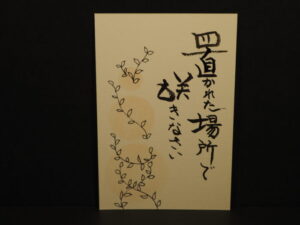 置かれた場所で
咲きなさい